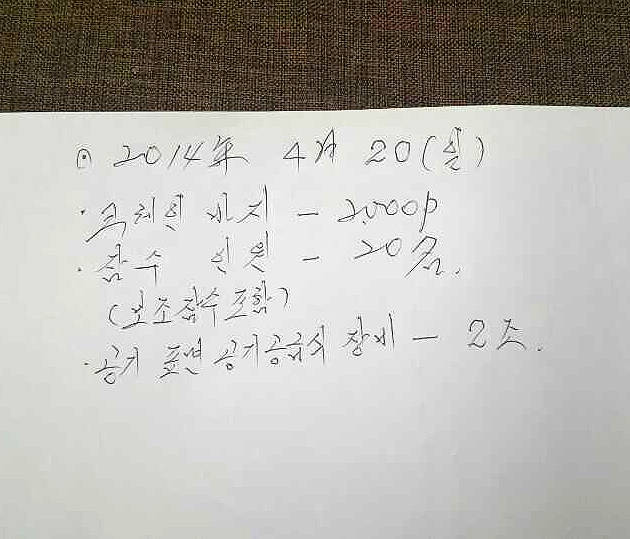 ⊙ 2014年 4月 20(일)
· 크레인 바지 - 2,000p
· 잠수 인원 - 20名.
(보조잠수포함)
· 공기 표면 공기공급식 장비 - 2조.